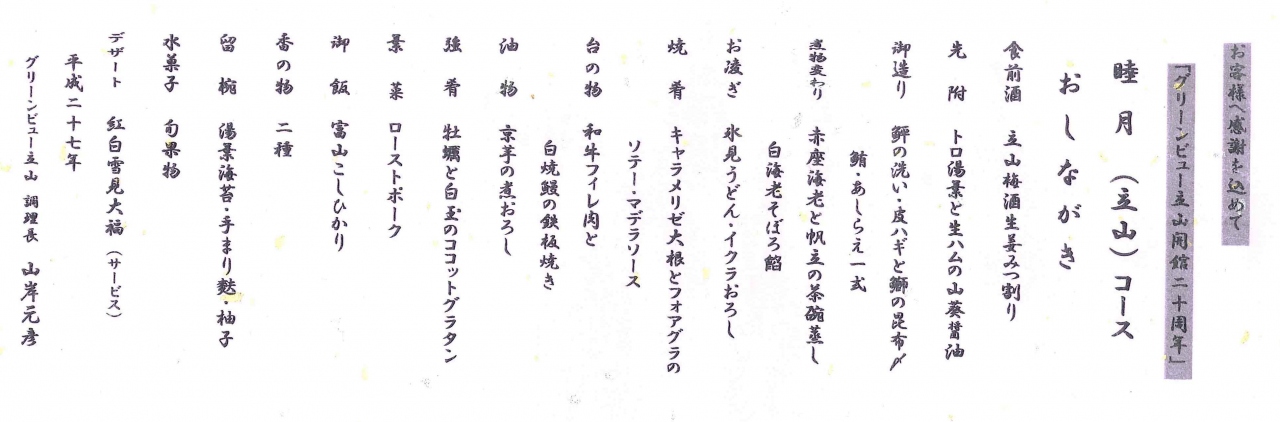 お客様へ感謝を込めて
「グリーンビュー立山開館二十周年」
睦月（立山）コース
おしながき
食前酒 立山梅酒生姜みつ割り
先附 トロ湯葉と生ハムの山葵醤油
御造り 鮃の洗い・皮ハギと鰤の昆布〆
鮪・あしらえ一式
煮物変わり 赤座海老と帆立の茶碗蒸し
白海老そぼろ餡
お凌ぎ 氷見うどん・イクラおろし
焼肴 キャラメリゼ大根とフォアグラの
ソテー・マデラソース
台の物 和牛フィレ肉と
白焼鰻の鉄板焼き
油物 京芋の煮おろし
強肴 牡蠣と白玉のココットグラタン
景菜 ローストポーク
御飯 富山こしひかり
香の物 二種
留椀 湯葉海苔・手まり麩・柚子
水菓子 旬果物
デザート 紅白雪見大福（サービス）
平成二十七年
グリーンビュー立山 調理長 山岸元彦